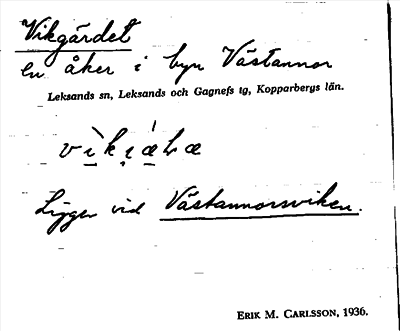 Vikgärdet
en åker i byn Västannor
Leksands sn, Leksands och Gagnefs tg, Kopparbergs län.
Ligger vid Västannorsviken.
ERIK M. CARLSSON, 1936.